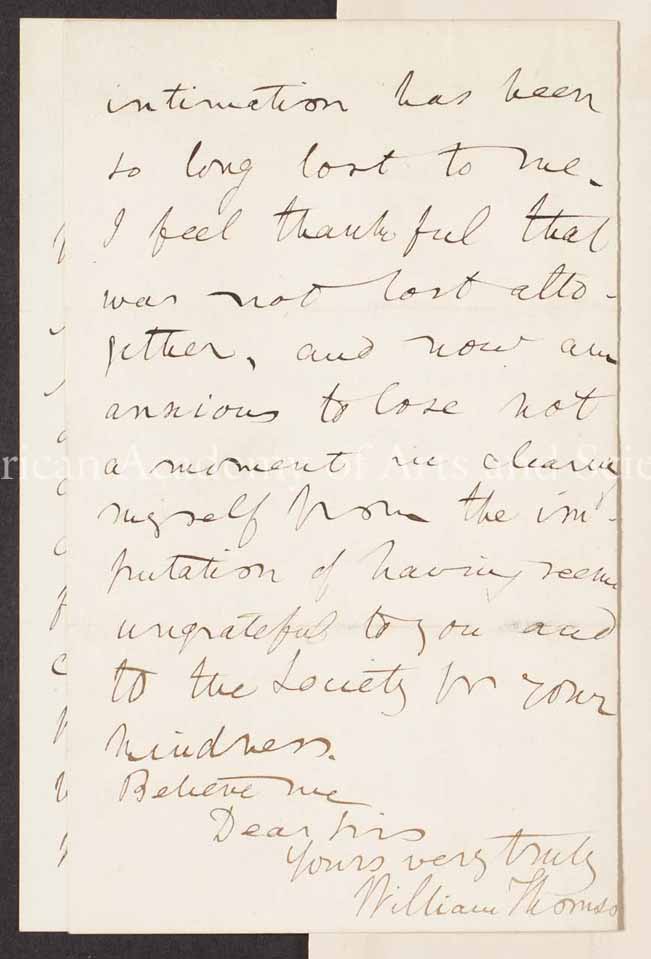 intimation has been
so long lost to me.
I feel thankful that
was not lost alto-
gether, and now am
anxious to lose not
a moment in clearing
myself from the im-
putation of having seem
ungrateful to you and
to the Society for your
kindness.
Believe me
Dear Sirs
Yours very truly
William Thomso
rican Academy of Arts and Scie